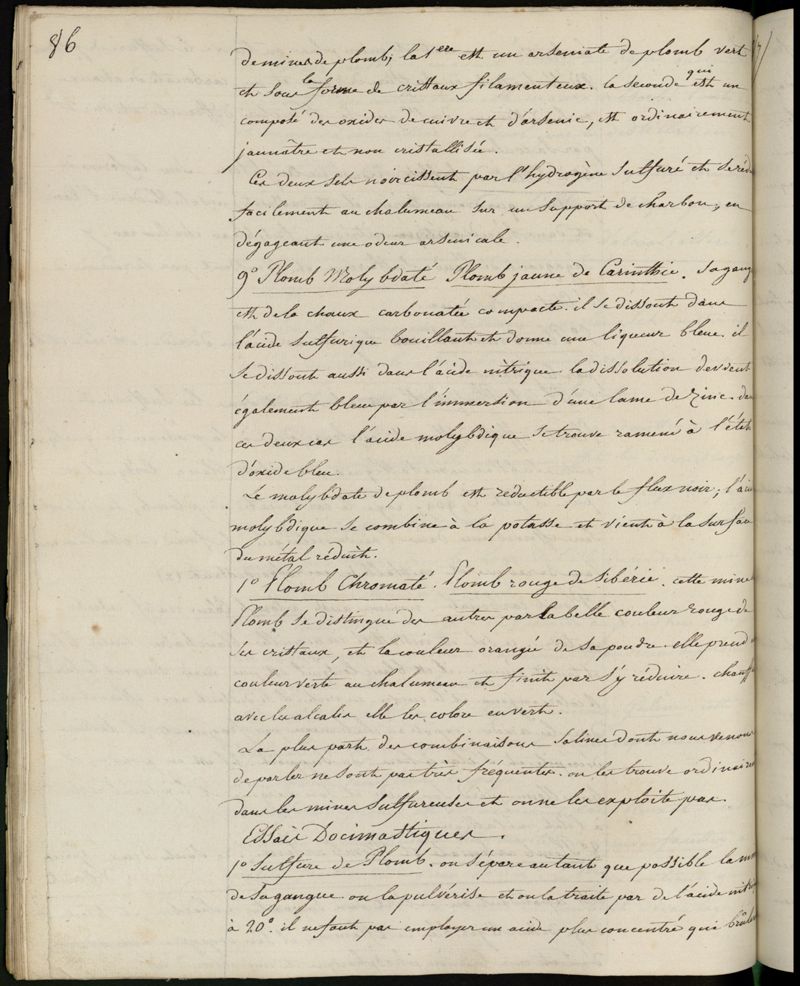 86
de mines de plomb; la 1ere est un arseniate de plomb vert
et sous la forme de cristaux filamenteux. la seconde qui est un
composé des oxides de cuivre et d'arsenic, est ordinairement
jaunâtre et non cristallisée.
Ces deux sels noircissent par l'hydrogène sulfuré et se réd
facilement au chalumeau sur un support de charbon, en
dégageant une odeur arsenicale.
9° Plomb Molybdaté Plomb jaune de Carinthie. Sa gang
est de la chaux carbonatée compacte. il se dissout dans
l'acide sulfurique bouillant et donne une liqueur bleue. il
se dissout aussi dans l'acide nitrique la dissolution devient
également bleue par l'immersion d'une lame de zinc. da
ces deux cas l'acide molybdique se trouve ramené à l'état
d'oxide bleu.
Le molybdate de plomb est réductible par le flux noir; l'aci
molybdique se combine à la potasse et vient à la surfac
du métal réduit.
1° Plomb Chromaté. Plomb rouge de Sibérie. cette mine
Plomb se distingue des autres par la belle couleur rouge de
ses cristaux, et la couleur orangée de sa poudre. elle prend
couleur verte au chalumeau et finit par s'y réduire. chauff
avec les alcalis elle les colore en vert.
La plus part des combinaisons salines dont nous venons
de parler ne sont pas très fréquentes. on les trouve ordinaire
dans les mines sulfureuses et on ne les exploite pas.
Essais Docimastiques.
1° Sulfure de Plomb. on sépare autant que possible la m
de sa gangue. on la pulvérise et on la traite par de l'acide nitr
à 20°. il ne faut pas employer un acide plus concentré qui brûle